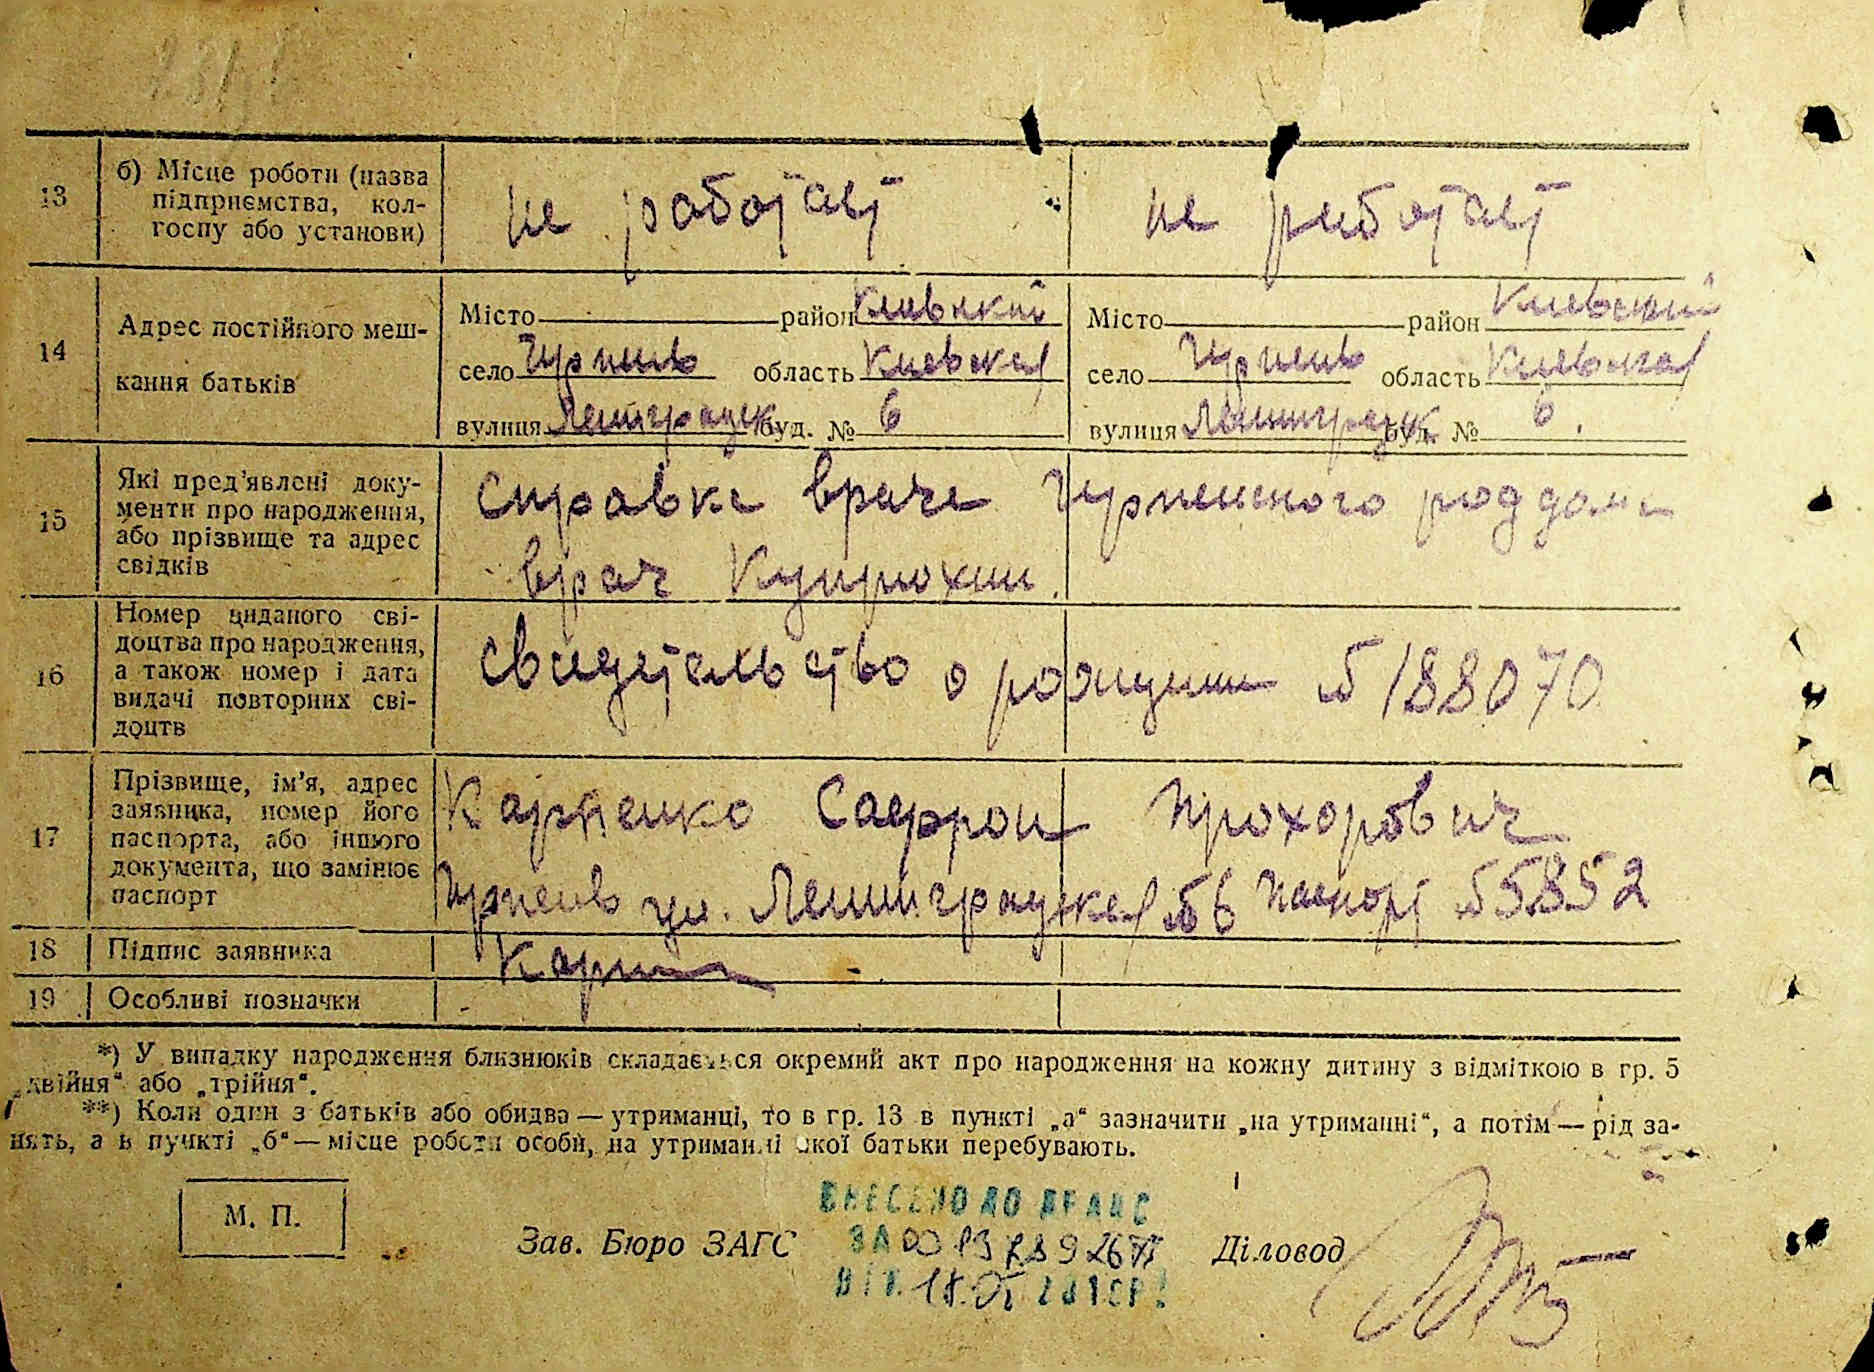 13
б) Місце роботи (назва
підприємства, кол-
госпу або установи)
не работает
не работает
14
Адрес постійного меш-
кання батьків
Місто район Киевский
село Ирпень область Киевская
вулиця Ленинградск буд. № 6
Місто район Киевский
село Ирпень область Киевская
вулиця Ленинградск буд. № 6.
15
Які пред'явлені доку-
менти про народження,
або прізвище та адрес
свідків
справка врача Ирпенского роддома
врач Купрюхин.
16
Номер виданого сві-
доцтва про народження,
а також номер і дата
видачі повторних сві-
доцтв
свидетельство о рождении № 188070
17
Прізвище, ім'я, адрес
заявника, номер його
паспорта, або іншого
документа, що замінює
паспорт
Карпенко Сафрон Прохорович
Ирпень ул. Ленинградская № 6 паспорт № 5852
18
Підпис заявника
19
Особливі позначки
*) У випадку народження близнюків складається окремий акт про народження на кожну дитину з відміткою в гр. 5
„двійня“ або „трійня“.
**) Коли один з батьків або обидва — утриманці, то в гр. 13 в пункті „а“ зазначити „на утриманні“, а потім — рід за-
нять, а в пункті „б“ — місце роботи особи, на утриманні якої батьки перебувають.
М. П.
ВНЕСЕНО ДО ДРАЦС
Зав. Бюро ЗАГС
ЗА
Діловод
ВІД